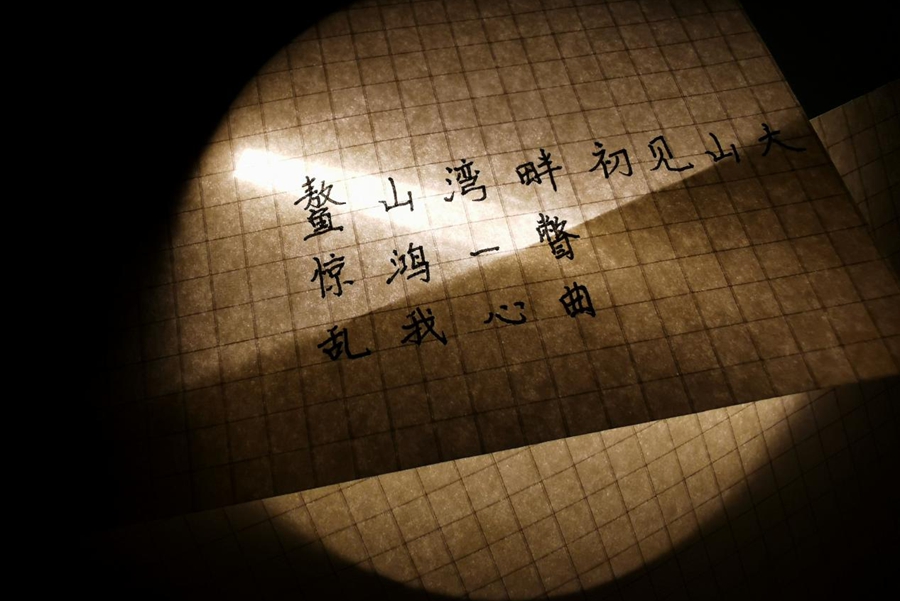 鳌山湾畔初见山大
惊鸿一瞥
乱我心曲